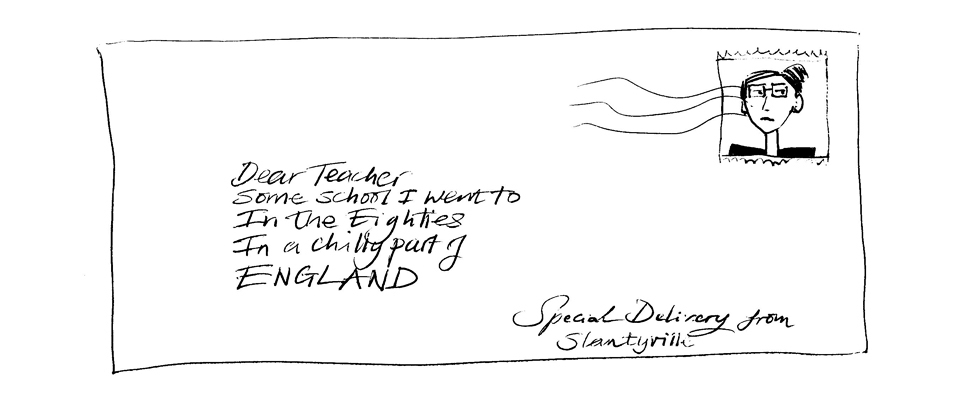 Dear Teacher
Some school I went to
In the Eighties
In a chilly part of
ENGLAND
Special Delivery from
Slantyville